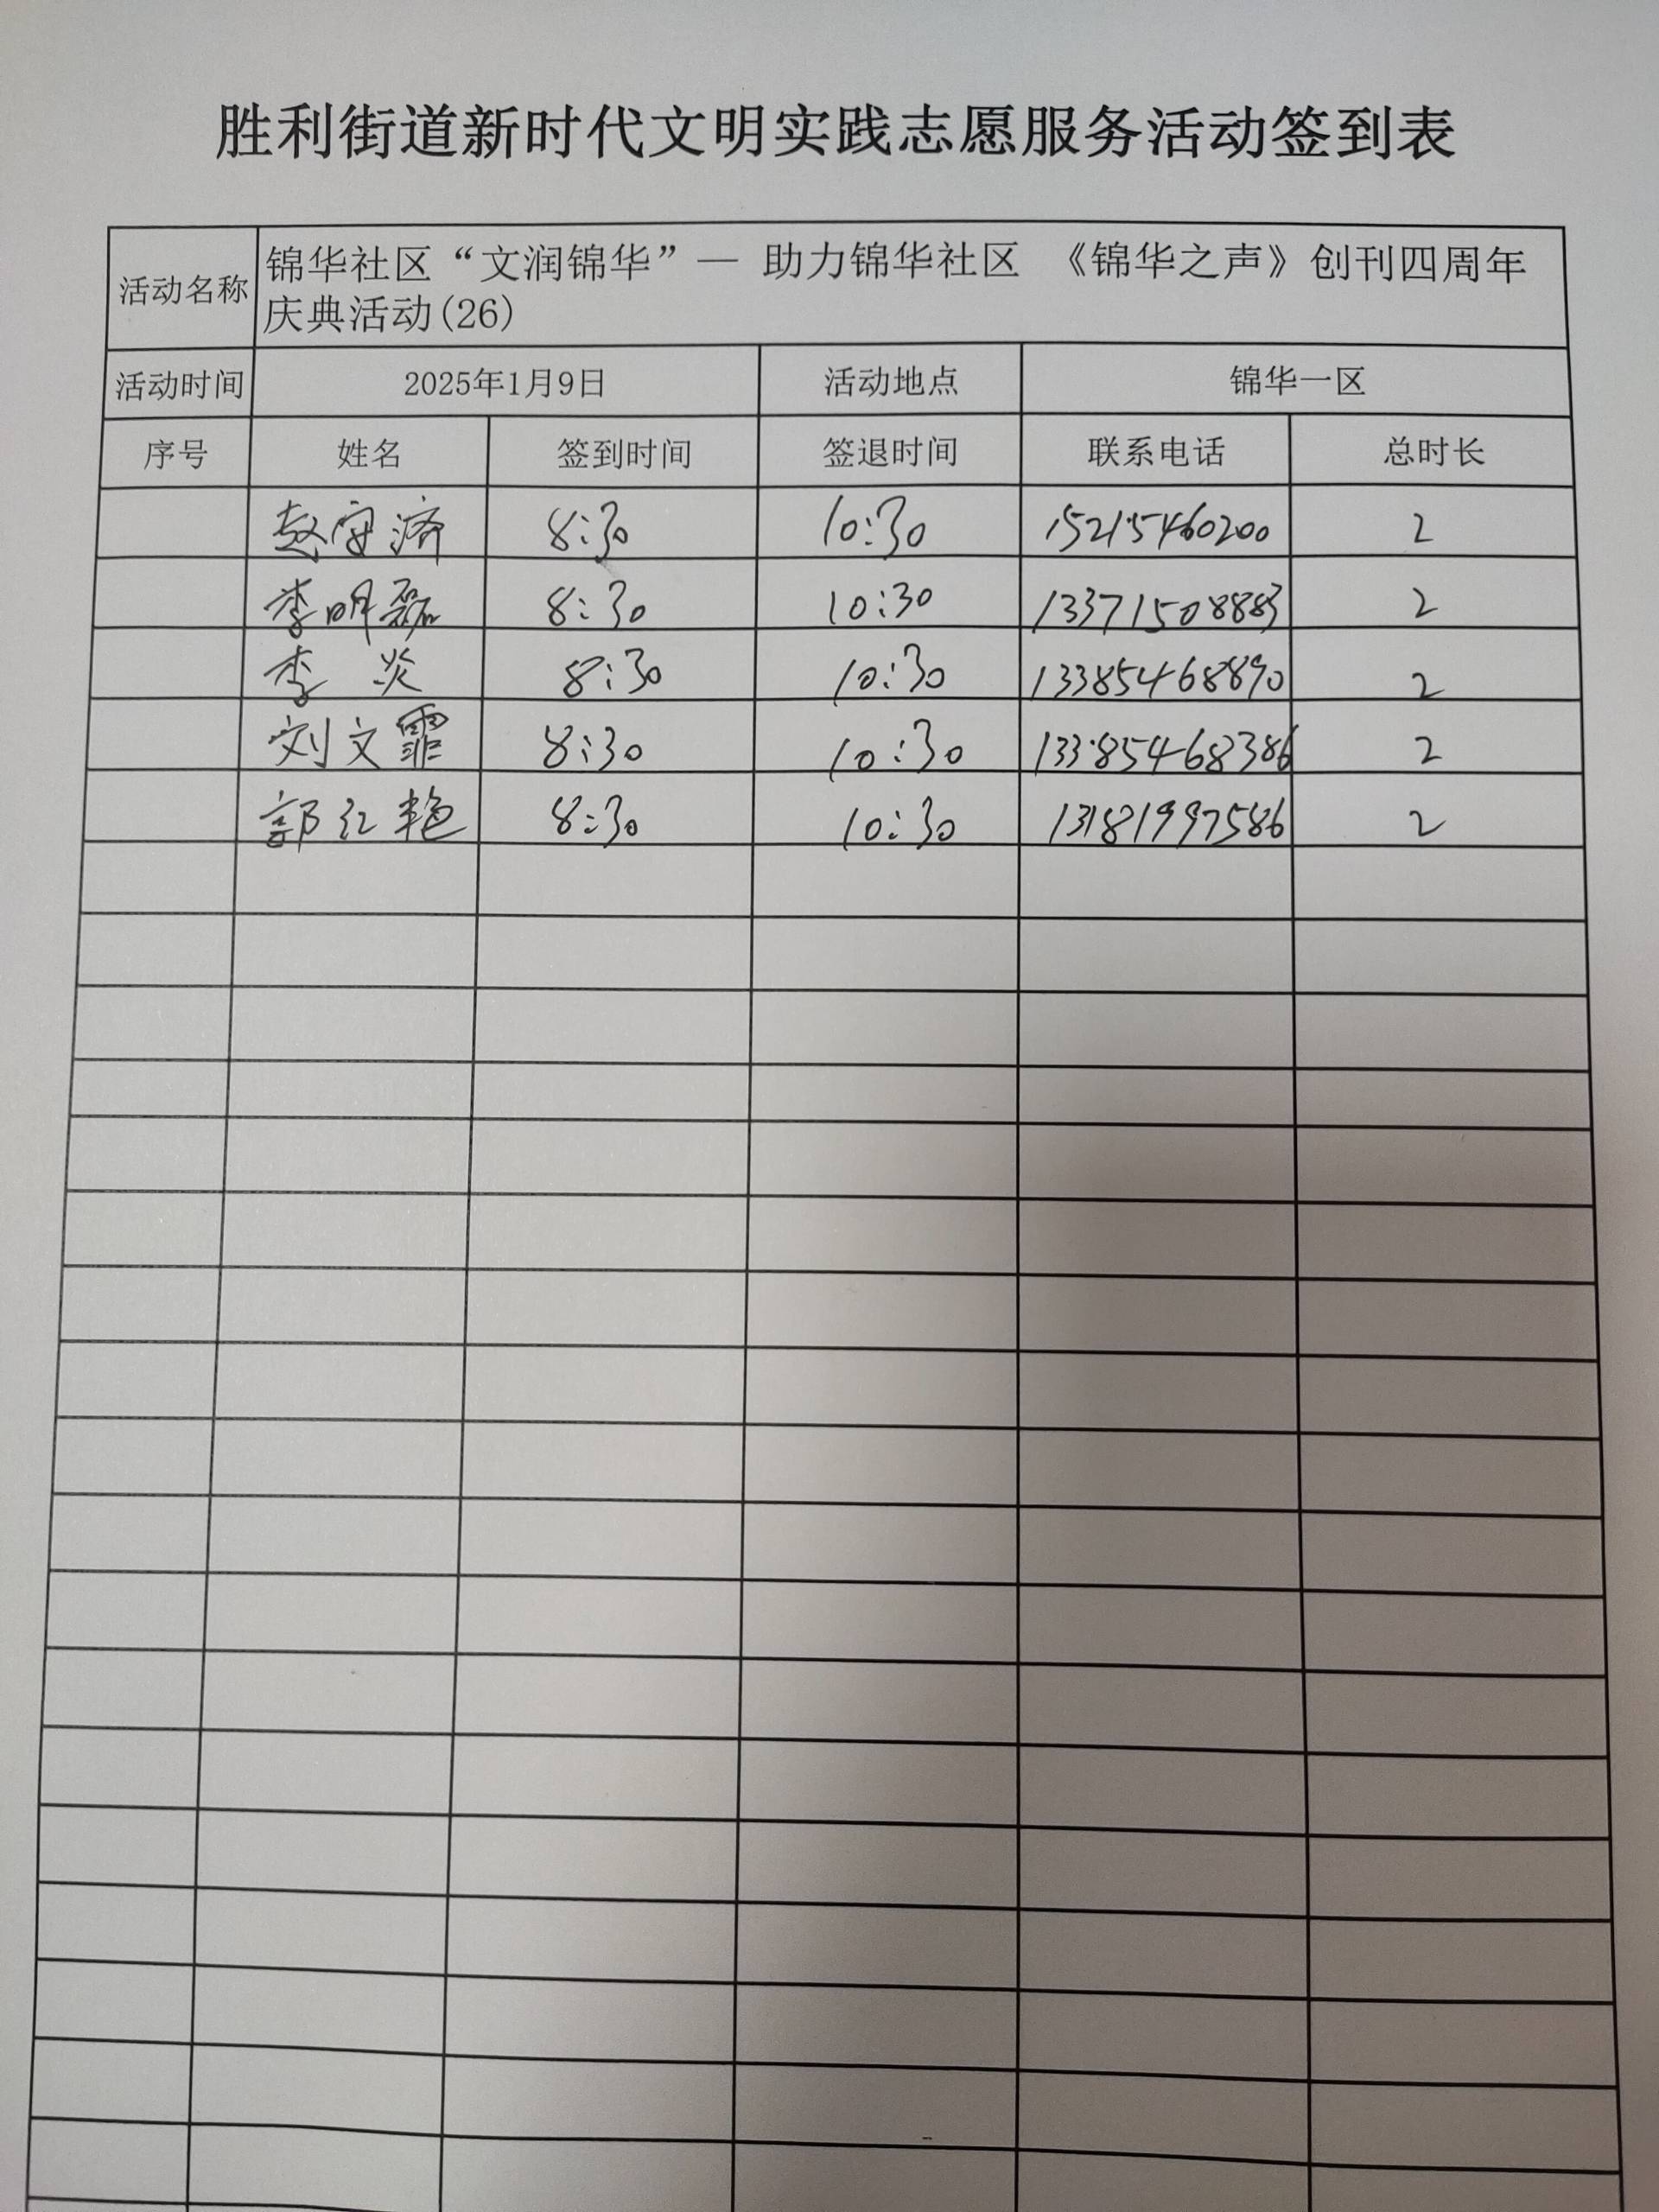 胜利街道新时代文明实践志愿服务活动签到表
活动名称 锦华社区“文润锦华”— 助力锦华社区 《锦华之声》创刊四周年
庆典活动(26)
活动时间 2025年1月9日 活动地点 锦华一区
序号 姓名 签到时间 签退时间 联系电话 总时长
赵守济 8:30 10:30 15215460200 2
李明磊 8:30 10:30 13371508883 2
李炎 8:30 10:30 13385468890 2
刘文霏 8:30 10:30 13385468386 2
郭红艳 8:30 10:30 13181997586 2